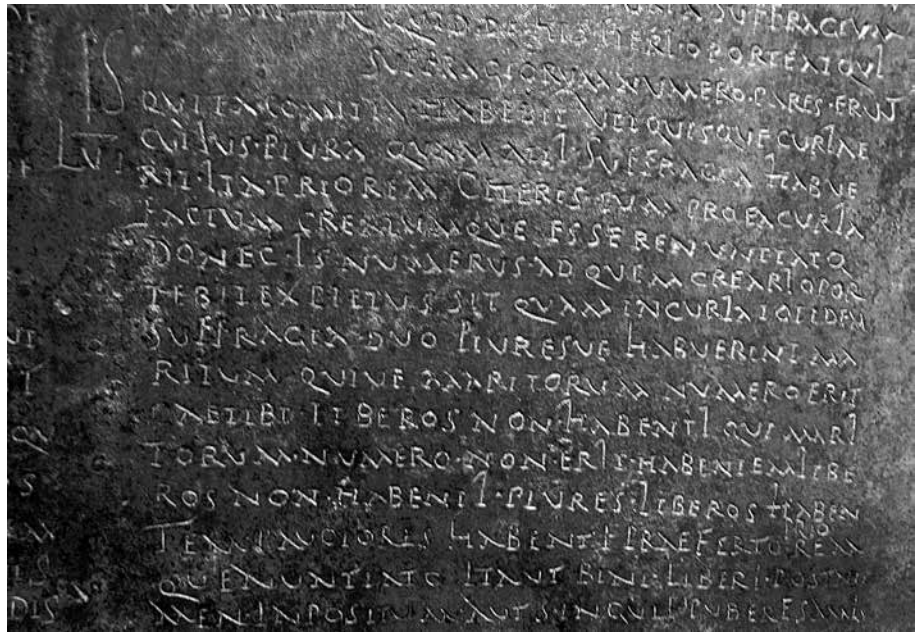 SUFFRAGIUM
QUID·DE·HIS·FIERI·OPORTEAT QUI
SUFFRAGIORUM NUMERO·PARES·ERUNT
IS QUI EA COMITIA·HABEBIT UTI QUISQUE CURIAE
LVI CUIUS·PLURA QUAM ALII SUFFRAGIA HABUE
RIT·ITA PRIOREM CETERIS·EUM PRO EA CURIA
FACTUM CREATUMQUE ESSE RENUNTIATO
DONEC·IS NUMERUS·AD QUEM CREARI OPOR
TEBIT EXPLETUS SIT QUAM IN CURIA TOTIDEM
SUFFRAGIA·DUO PLURESUE HABUERINT MA
RITUM QUIUE MARITORUM NUMERO ERIT
CAELIBI LIBEROS NON·HABENTI QUI MARI
TORUM·NUMERO·NON·ERIT·HABENTEM LIBE
ROS NON·HABENTI·PLURES·LIBEROS HABEN
TEM PAUCIORES HABENTI PRAEFERTO PRIOREM
QUE NUNTIATO ITA UT BINI LIBERI·POST NO
MEN INPOSITUM AUT SINGULI PUBERES AMIS